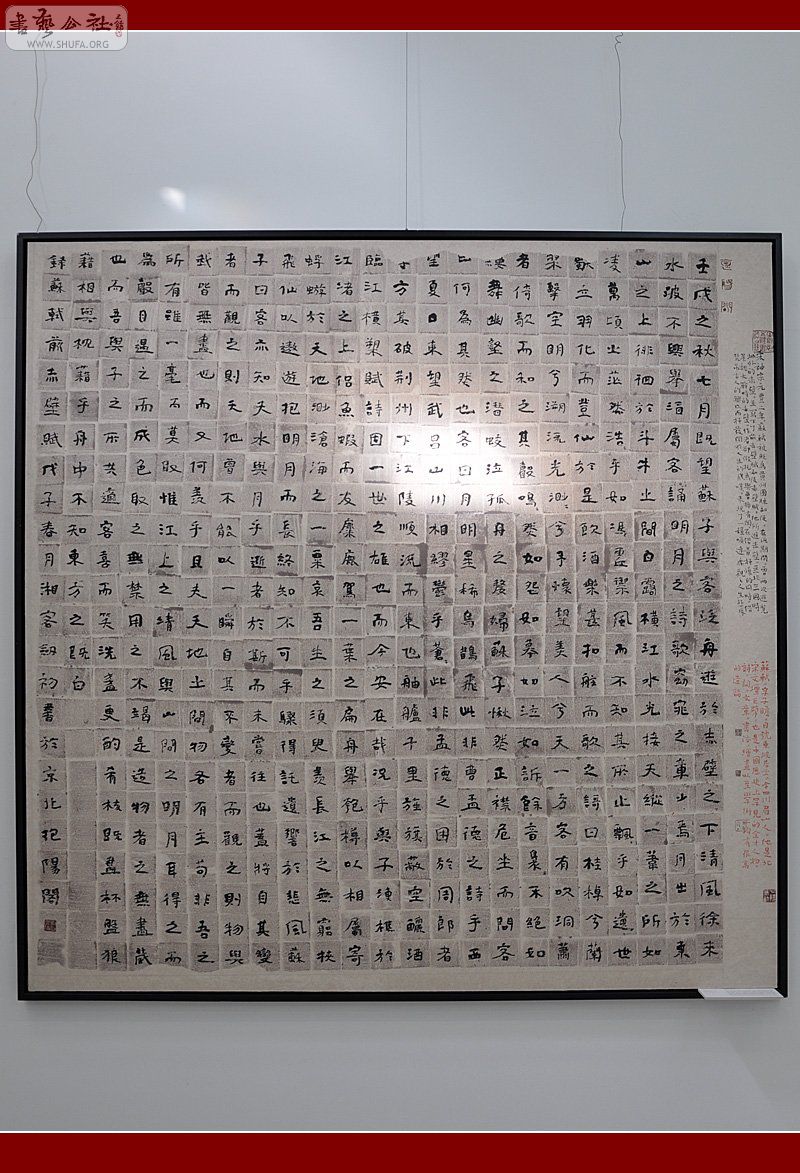 壬戌之秋七月既望蘇子與客泛舟遊於赤壁之下清風徐來
水波不興舉酒屬客誦明月之詩歌窈窕之章少焉月出於東
山之上徘徊於斗牛之間白露橫江水光接天縱一葦之所如
凌萬頃之茫然浩乎如馮虛御風而不知其所止飄乎如遺世
獨立羽化而登仙於是飲酒樂甚扣舷而歌之歌曰桂棹兮蘭
槳擊空明兮溯流光渺〻兮予懷望美人兮天一方客有吹洞簫
者倚歌而和之其聲嗚〻然如怨如慕如泣如訴餘音裊〻不絕如
縷舞幽壑之潛蛟泣孤舟之嫠婦蘇子愀然正襟危坐而問客
曰何為其然也客曰月明星稀烏鵲飛此非曹孟德之詩乎西
望夏口東望武昌山川相繆鬱乎蒼〻此非孟德之困於周郎者
乎方其破荊州下江陵順流而東也舳艫千里旌旗蔽空釃酒
臨江橫槊賦詩固一世之雄也而今安在哉況乎與子漁樵於
江渚之上侶魚蝦而友麋鹿駕一葉之扁舟舉匏樽以相屬寄
蜉蝣於天地渺滄海之一粟哀吾生之須臾羨長江之無窮挾
飛仙以遨遊抱明月而長終知不可乎驟得託遺響於悲風蘇
子曰客亦知夫水與月乎逝者於斯而未嘗往也蓋將自其變
者而觀之則天地曾不能以一瞬自其不變者而觀之則物與
我皆無盡也而又何羨乎且夫天地之間物各有主苟非吾之
所有雖一毫而莫取惟江上之清風與山間之明月耳得之而
為聲目遇之而成色取之無禁用之不竭是造物者之無盡藏
也而吾與子之所共適客喜而笑洗盞更酌肴核既盡杯盤狼
藉相與枕藉乎舟中不知東方之既白
錄蘇軾前赤壁賦戊子春月湘客書於京北陽閣
書藝公社
WWW.SHUFA.ORG